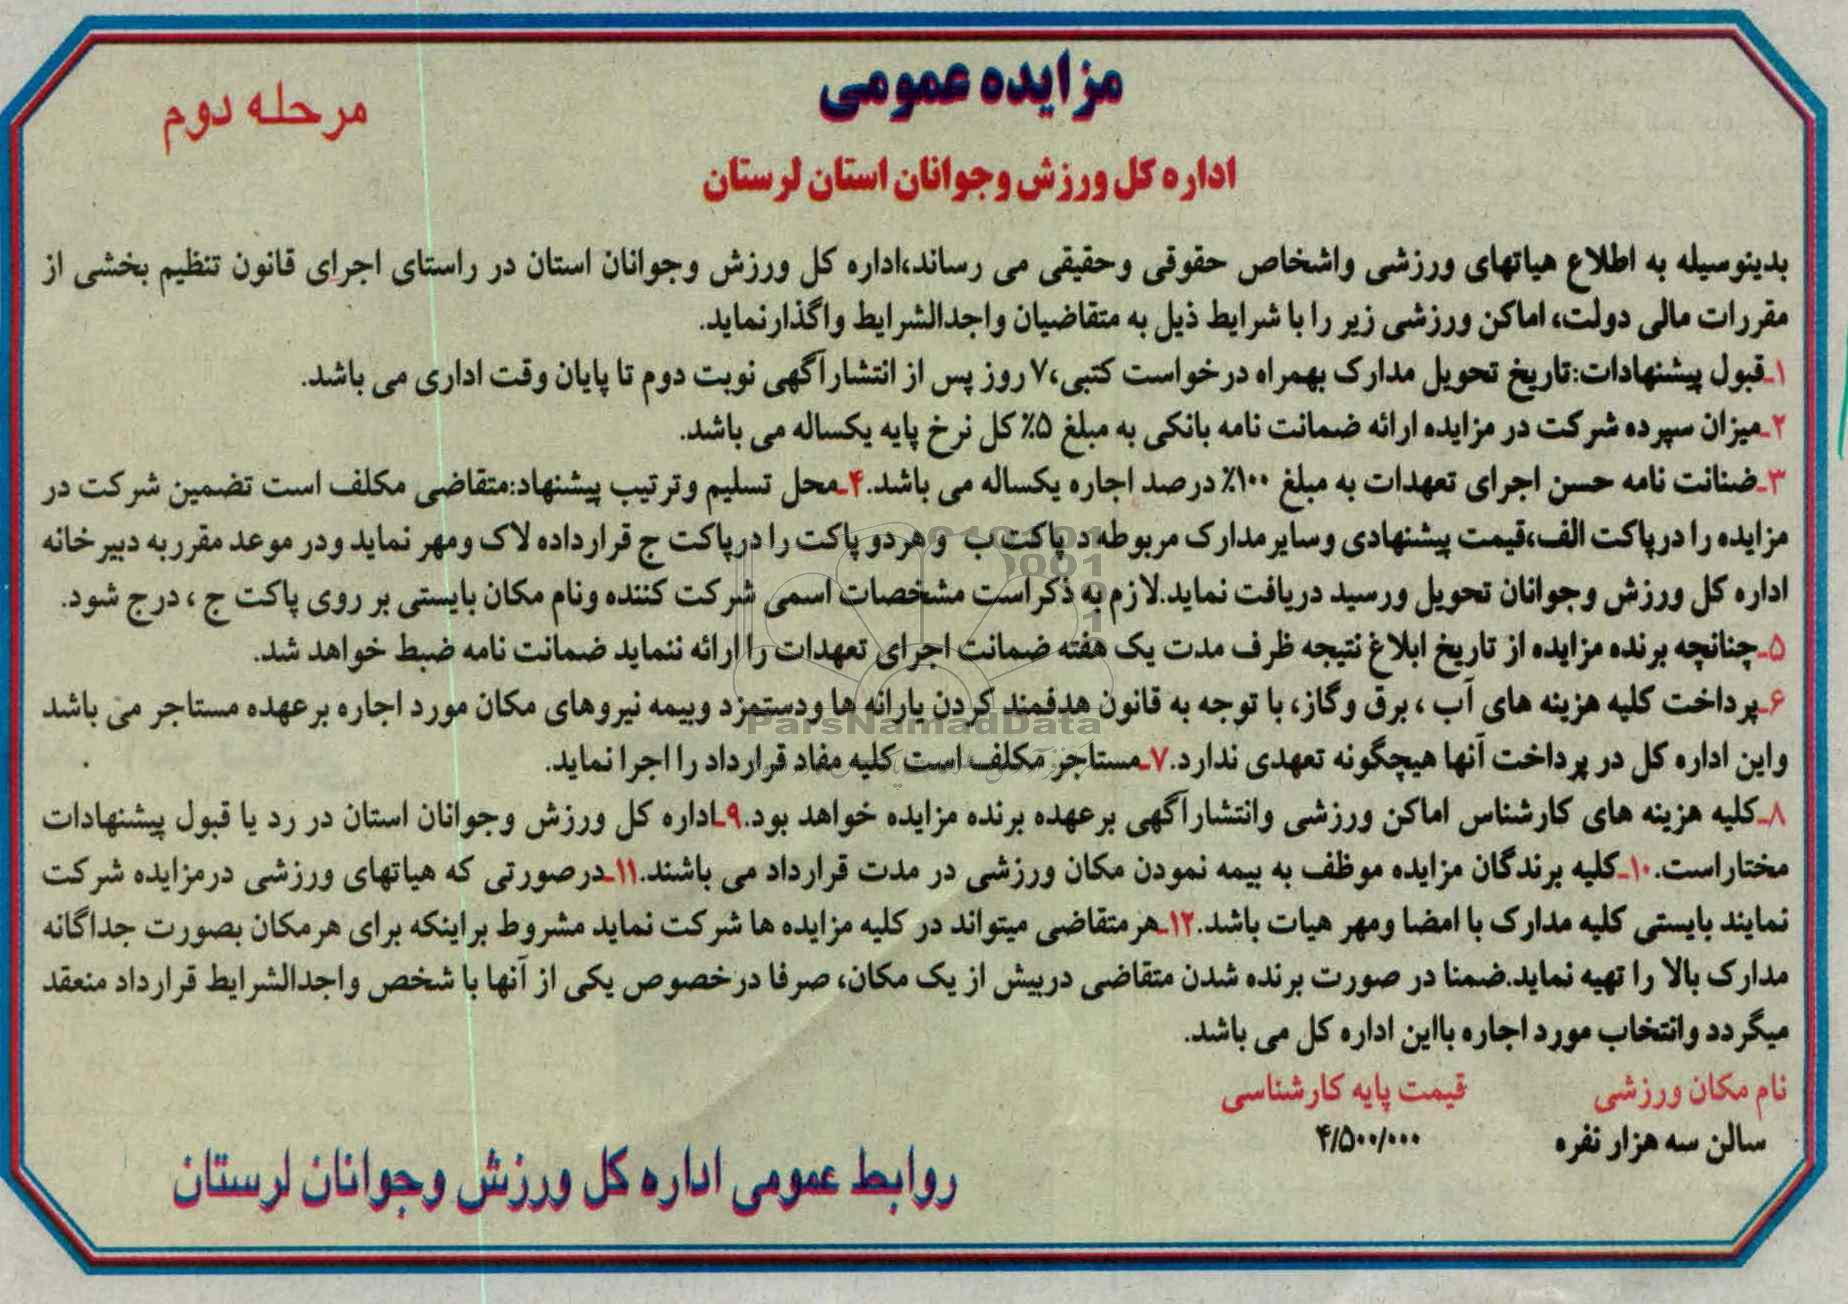 مزایده عمومی
مرحله دوم
اداره کل ورزش وجوانان استان لرستان
بدینوسیله به اطلاع هیاتهای ورزشی واشخاص حقوقی وحقیقی می رساند،اداره کل ورزش وجوانان استان در راستای اجرای قانون تنظیم بخشی از
مقررات مالی دولت، اماکن ورزشی زیر را با شرایط ذیل به متقاضیان واجدالشرایط واگذارنماید.
۱ـقبول پیشنهادات:تاریخ تحویل مدارک بهمراه درخواست کتبی،۷ روز پس از انتشارآگهی نوبت دوم تا پایان وقت اداری می باشد.
۲ـمیزان سپرده شرکت در مزایده ارائه ضمانت نامه بانکی به مبلغ ۵٪ کل نرخ پایه یکساله می باشد.
۳ـضنانت نامه حسن اجرای تعهدات به مبلغ ۱۰۰٪ درصد اجاره یکساله می باشد.۴ـمحل تسلیم وترتیب پیشنهاد:متقاضی مکلف است تضمین شرکت در
مزایده را درپاکت الف،قیمت پیشنهادی وسایرمدارک مربوطه د پاکت ب وهردو پاکت را درپاکت ج قرارداده لاک ومهر نماید ودر موعد مقرربه دبیرخانه
اداره کل ورزش وجوانان تحویل ورسید دریافت نماید.لازم به ذکراست مشخصات اسمی شرکت کننده ونام مکان بایستی بر روی پاکت ج ، درج شود.
۵ـچنانچه برنده مزایده از تاریخ ابلاغ نتیجه ظرف مدت یک هفته ضمانت اجرای تعهدات را ارائه ننماید ضمانت نامه ضبط خواهد شد.
۶ـپرداخت کلیه هزینه های آب ، برق وگاز، با توجه به قانون هدفمند کردن یارانه ها ودستمزد وبیمه نیروهای مکان مورد اجاره برعهده مستاجر می باشد
واین اداره کل در پرداخت آنها هیچگونه تعهدی ندارد.۷ـمستاجر مکلف است کلیه مفاد قرارداد را اجرا نماید.
۸ـکلیه هزینه های کارشناس اماکن ورزشی وانتشارآگهی برعهده برنده مزایده خواهد بود.۹ـاداره کل ورزش وجوانان استان در رد یا قبول پیشنهادات
مختاراست.۱۰ـکلیه برندگان مزایده موظف به بیمه نمودن مکان ورزشی در مدت قرارداد می باشند.۱۱ـدرصورتی که هیاتهای ورزشی درمزایده شرکت
نمایند بایستی کلیه مدارک با امضا ومهر هیات باشد.۱۲ـهرمتقاضی میتواند در کلیه مزایده ها شرکت نماید مشروط براینکه برای هرمکان بصورت جداگانه
مدارک بالا را تهیه نماید.ضمنا در صورت برنده شدن متقاضی دربیش از یک مکان، صرفا درخصوص یکی از آنها با شخص واجدالشرایط قرارداد منعقد
میگردد وانتخاب مورد اجاره بااین اداره کل می باشد.
نام مکان ورزشی قیمت پایه کارشناسی
سالن سه هزار نفره ۴/۵۰۰/۰۰۰
روابط عمومی اداره کل ورزش وجوانان لرستان
ParsNamadData